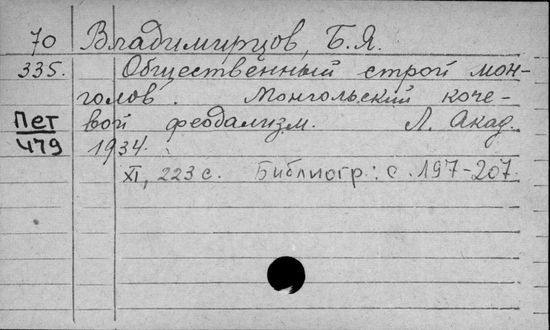 70 Владимирцов, Б.Я.
335. Общественный строй мон-
голов. Монгольский коче-
Пет вой феодализм. Л. Акад.
479 1934.
XI, 223 с. Библиогр.: с. 197-207.